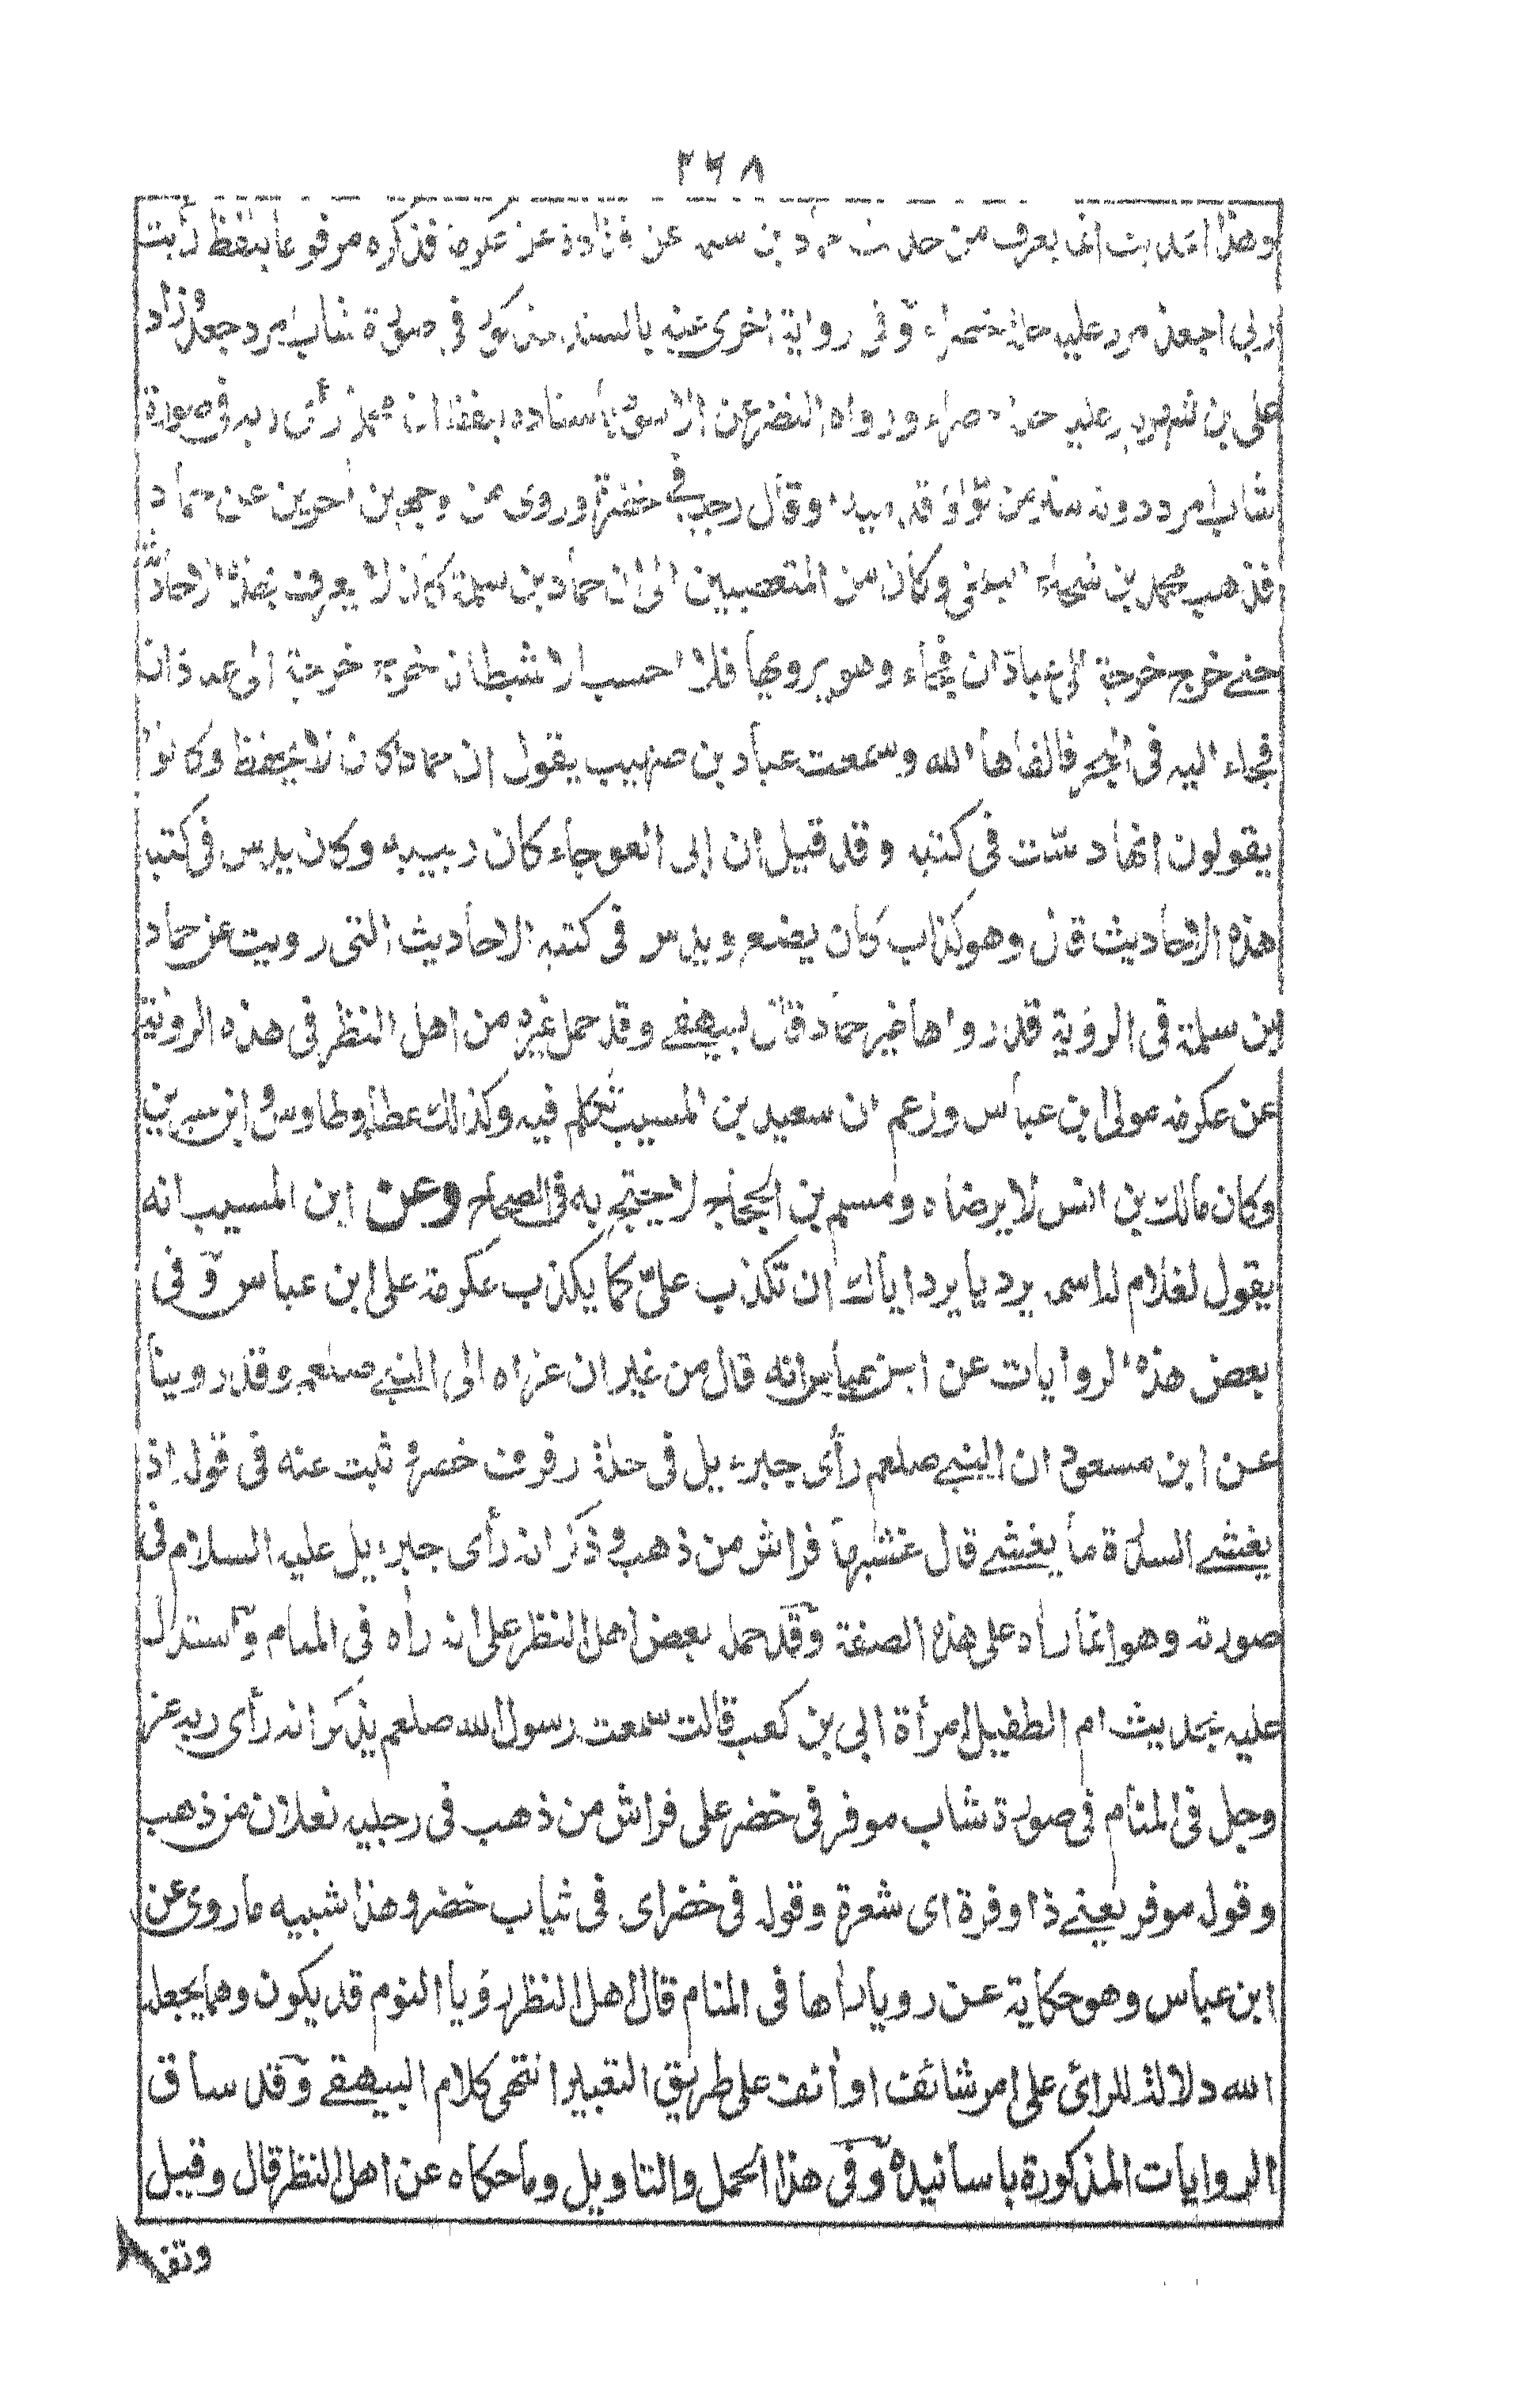 ٢٦٨
وهذا الحديث انما يعرف من حديث حماد بن سلمة عن قتادة عن عكرمة فذكره مرفوعا بلفظ رأيت
ربي اجعد امرد عليه حلة خضراء وفي رواية اخرى عنه بالسند في صورة شاب امرد جعد وزاد
علي بن عليه حلة خضراء ورواه النضر عن الاسود باسناده بلفظ ان محمدا رأى ربه في صورة
شاب امرد دونه ستر من لؤلؤ قدميه وقال رجليه في خضرة وروى من وجهين اخرين عن حماد
فذهب محمد بن شجاع وكان من المتعصبين الى ان حماد بن سلمة كان لا يعرف بهذه الاحاديث
حتى خرج خرجة الى عبادان فجاء وهو يرويها فلا احسب الا شيطان خرج خرجة الى
فجاء اليه في البحر فالقاها الله وسمعت عباد بن صهيب يقول ان حماد كان لا يحفظ وكانوا
يقولون انها دست في كتبه وقد قيل ان ابي العوجاء كان ربيبه وكان يدس في كتبه
هذه الاحاديث قال وهو كذاب كان يضع ويدس في كتبه الاحاديث التي رويت عن حماد
بن سلمة في الرؤية قد رواها غير حماد قال البيهقي وقد حمل غيره من اهل النظر في هذه الرواية
عن عكرمة مولى ابن عباس وزعم ان سعيد بن المسيب تكلم فيه وكذلك عطاء وطاوس وابن سيرين
وكان مالك بن انس لا يرضاه ومسلم بن الحجاج لا يحتج به في الصحاح وعن ابن المسيب انه
يقول لغلام له اسمه برد يا برد اياك ان تكذب علي كما يكذب عكرمة على ابن عباس وفي
بعض هذه الروايات عن ابن عباس انه قال من غير ان عزاه الى النبي صلعم وقد روينا
عن ابن مسعود ان النبي صلعم رأى جبرءيل في حلة رفرف خضر و ثبت عنه في قوله اذ
يغشى السدرة ما يغشى قال غشيها فراش من ذهب و ذكر انه رأى جبرءيل عليه السلام في
صورته وهو انما رأه على هذه الصفة وقد حمل بعض اهل النظر على انه رأه في المنام واستدل
عليه بحديث ام الطفيل امرأة ابي بن كعب قالت سمعت رسول الله صلعم يذكر انه رأى ربه عز
وجل في المنام في صورة شاب موفر في خضر على فراش من ذهب في رجليه نعلان من ذهب
وقوله موفر يعني ذا وفرة اي شعرة وقوله في خضر اي في ثياب خضر وهذا شبيه ما روى عن
ابن عباس وهو حكاية عن رويا رأها في المنام قال اهل النظر رؤيا النوم قد يكون وهما يجعله
الله دلالة للرائي على امر شائف او أنف على طريق التعبير انتهى كلام البيهقي وقد ساق
الروايات المذكورة باسانيده وفي هذا الحمل والتاويل وما حكاه عن اهل النظر قال وقيل